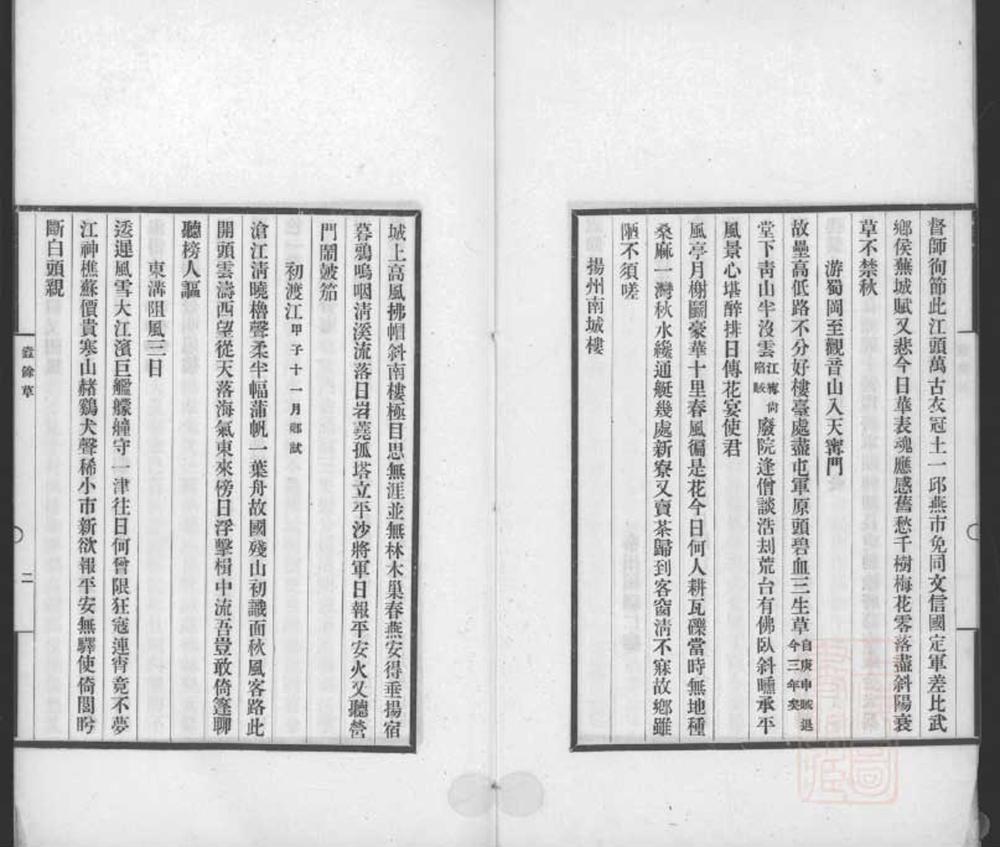 督師徇節此江頭萬古衣冠土一邱燕市免同文信國定軍差比武
鄉侯蕪城賦又悲今日華表魂應感舊愁千樹梅花零落盡斜陽衰
草不禁秋
游蜀岡至觀音山入天寗門
故壘高低路不分好樓臺處盡屯軍原頭碧血三生草自庚申賊退今三年矣
堂下靑山半沒雲江寗尙陷賊廢院逢僧談浩刦荒台有佛臥斜曛承平
風景心堪醉排日傳花宴使君
風亭月榭鬬豪華十里春風徧是花今日何人耕瓦礫當時無地種
桑麻一灣秋水纔通艇幾處新寮又賣茶歸到客窗淸不寐故鄉雖
陋不須嗟
揚州南城樓
城上高風拂帽斜南樓極目思無涯並無林木巢春燕安得垂揚宿
暮鴉嗚咽淸溪流落日岧蕘孤塔立平沙將軍日報平安火又聽營
門鬧皷笳
初渡江甲子十一月鄉試
滄江淸曉櫓聲柔半幅蒲帆一葉舟故國殘山初識面秋風客路此
開頭雲濤西望從天落海氣東來傍日浮擊楫中流吾豈敢倚篷聊
聽榜人謳
東溝阻風三日
逶遲風雪大江濱巨艦艨艟守一津往日何曾限狂寇連宵竟不夢
江神樵蘇價貴寒山赭鷄犬聲稀小市新欲報平安無驛使倚閭盻
斷白頭親
蠧餘草
二